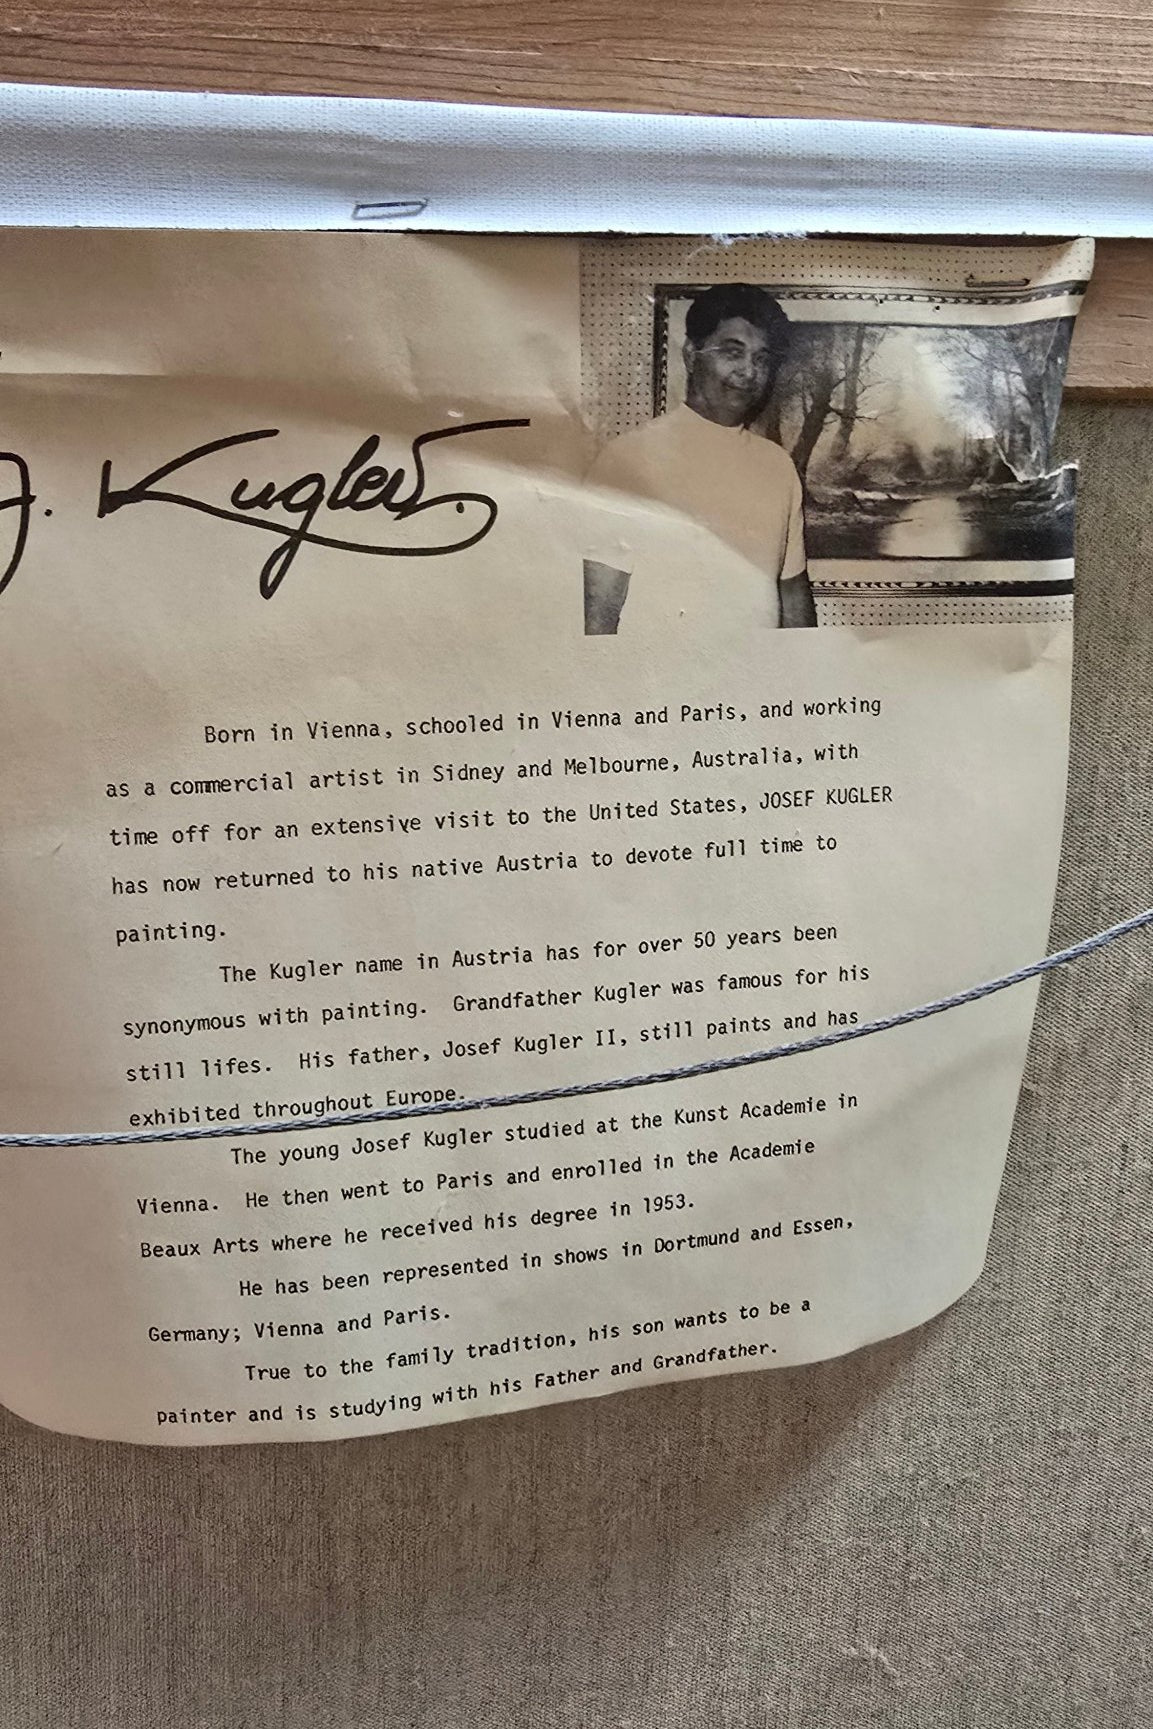 J. Kugler.
Born in Vienna, schooled in Vienna and Paris, and working
as a commercial artist in Sidney and Melbourne, Australia, with
time off for an extensive visit to the United States, JOSEF KUGLER
has now returned to his native Austria to devote full time to
painting.
The Kugler name in Austria has for over 50 years been
synonymous with painting. Grandfather Kugler was famous for his
still lifes. His father, Josef Kugler II, still paints and has
exhibited throughout Europe.
The young Josef Kugler studied at the Kunst Academie in
Vienna. He then went to Paris and enrolled in the Academie
Beaux Arts where he received his degree in 1953.
He has been represented in shows in Dortmund and Essen,
Germany; Vienna and Paris.
True to the family tradition, his son wants to be a
painter and is studying with his Father and Grandfather.